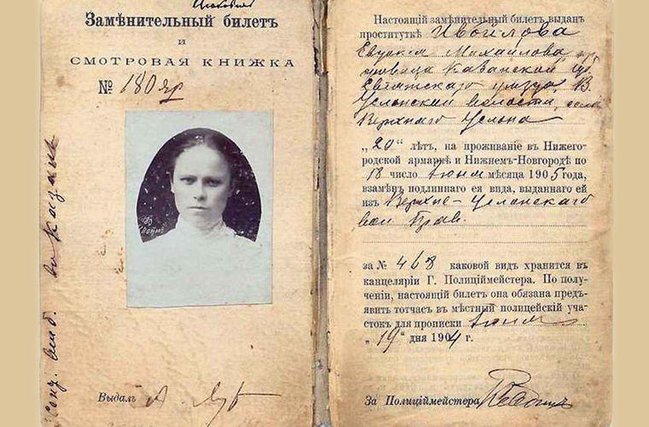 Замѣнительный билетъ
и
СМОТРОВАЯ КНИЖКА
№ 180 яр
Выдалъ
Настоящій замѣнительный билетъ выданъ
проституткѣ Ивойлова
Евдокія Михайлова кр
Казанской гу
Свіяжскаго уѣзда, В.
Услонской волости, села
Верхняго Услона
„20" лѣтъ, на проживаніе въ Нижего-
родской ярмаркѣ и Нижнемъ-Новгородѣ по
18 число Іюня мѣсяца 1905 года,
взамѣнъ подлиннаго ея вида, выданнаго ей
изъ Верхне-Услонскаго
вол Прав.
за № 468 каковой видъ хранится въ
канцеляріи Г. Полиціймейстера. По полу-
ченіи, настоящій билетъ она обязана предъ-
явить тотчасъ въ мѣстный полицейскій уча-
стокъ для прописки Іюня
„19" дня 1904 г.
За Полиціймейстера